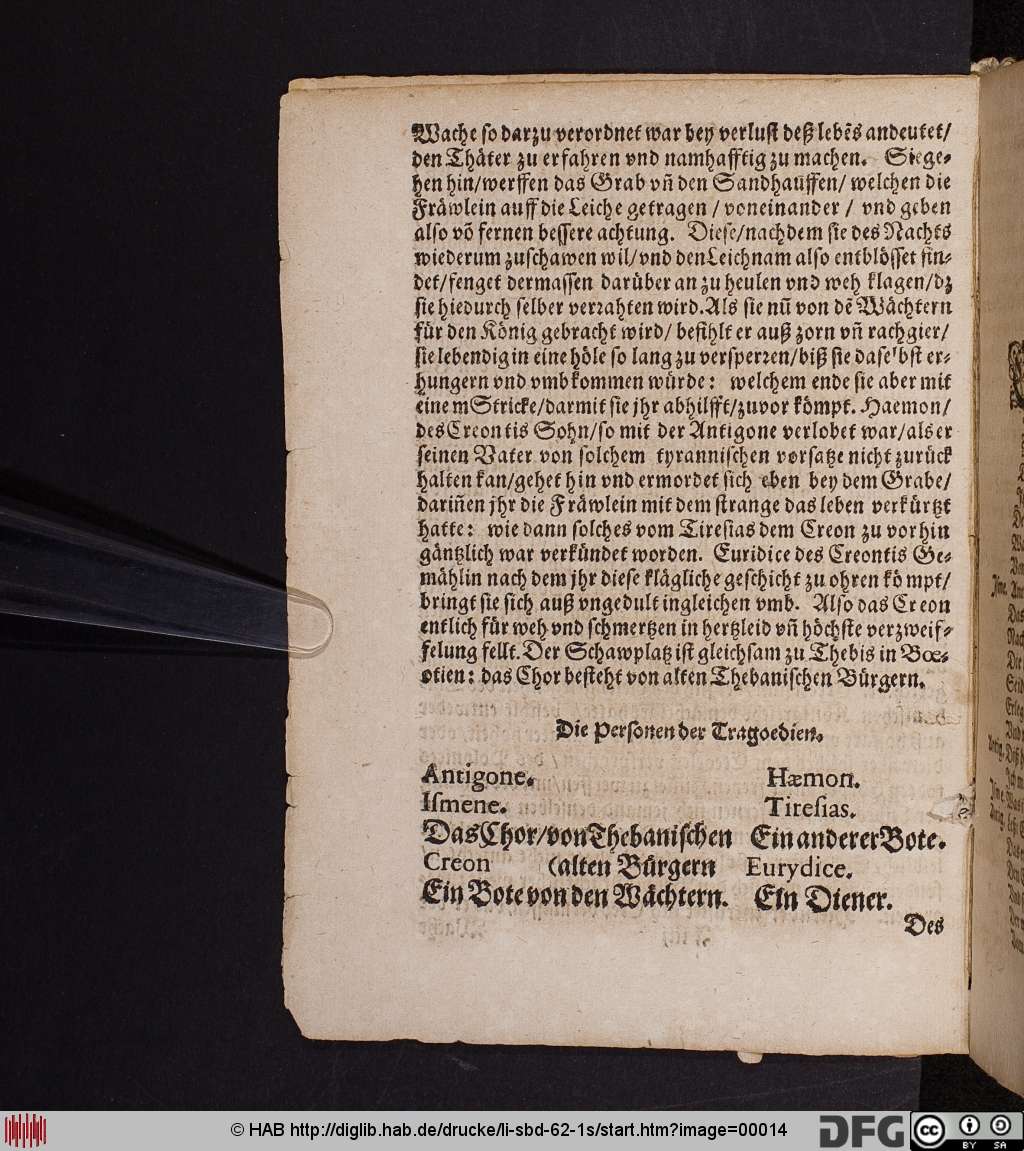 Wache so darzu verordnet war bey verlust deß lebēs andeutet/
den Thäter zu erfahren vnd namhafftig zu machen. Sie ge-
hen hin/werffen das Grab vñ den Sandhauffen/ welchen die
Fräwlein auff die Leiche getragen / voneinander / vnd geben
also võ fernen bessere achtung. Diese/nachdem sie des Nachts
wiederum zuschawen wil/vnd den Leichnam also entblösset fin-
det/fenget dermassen darüber an zu heulen vnd weh klagen/dz
sie hiedurch selber verrahten wird. Als sie nũ von dē Wächtern
für den König gebracht wird/ befihlt er auß zorn vñ rachgier/
sie lebendig in eine höle so lang zu versperren/biß sie daselbst er-
hungern vnd vmbkommen würde: welchem ende sie aber mit
einem Stricke/darmit sie jhr abhilfft/zuvor kömpt. Haemon/
des Creontis Sohn/so mit der Antigone verlobet war/als er
seinen Vater von solchem tyrannischen vorsatze nicht zurück
halten kan/gehet hin vnd ermordet sich eben bey dem Grabe/
dariñen jhr die Fräwlein mit dem strange das leben verkürtzt
hatte: wie dann solches vom Tiresias dem Creon zu vorhin
gäntzlich war verkündet worden. Euridice des Creontis Ge-
mählin nach dem jhr diese klägliche geschicht zu ohren kömpt/
bringt sie sich auß vngedult ingleichen vmb. Also das Creon
entlich für weh vnd schmertzen in hertzleid vñ höchste verzweif-
felung fellt. Der Schawplatz ist gleichsam zu Thebis in Bœ-
otien: das Chor besteht von alten Thebanischen Bürgern.
Die Personen der Tragoedien.
Antigone. Hæmon.
Ismene. Tiresias.
Das Chor/von Thebanischen Ein anderer Bote.
Creon (alten Bürgern Eurydice.
Ein Bote von den Wächtern. EIn Diener.
Des
© HAB http://diglib.hab.de/drucke/li-sbd-62-1s/start.htm?image=00014
DFG
cc BY SA